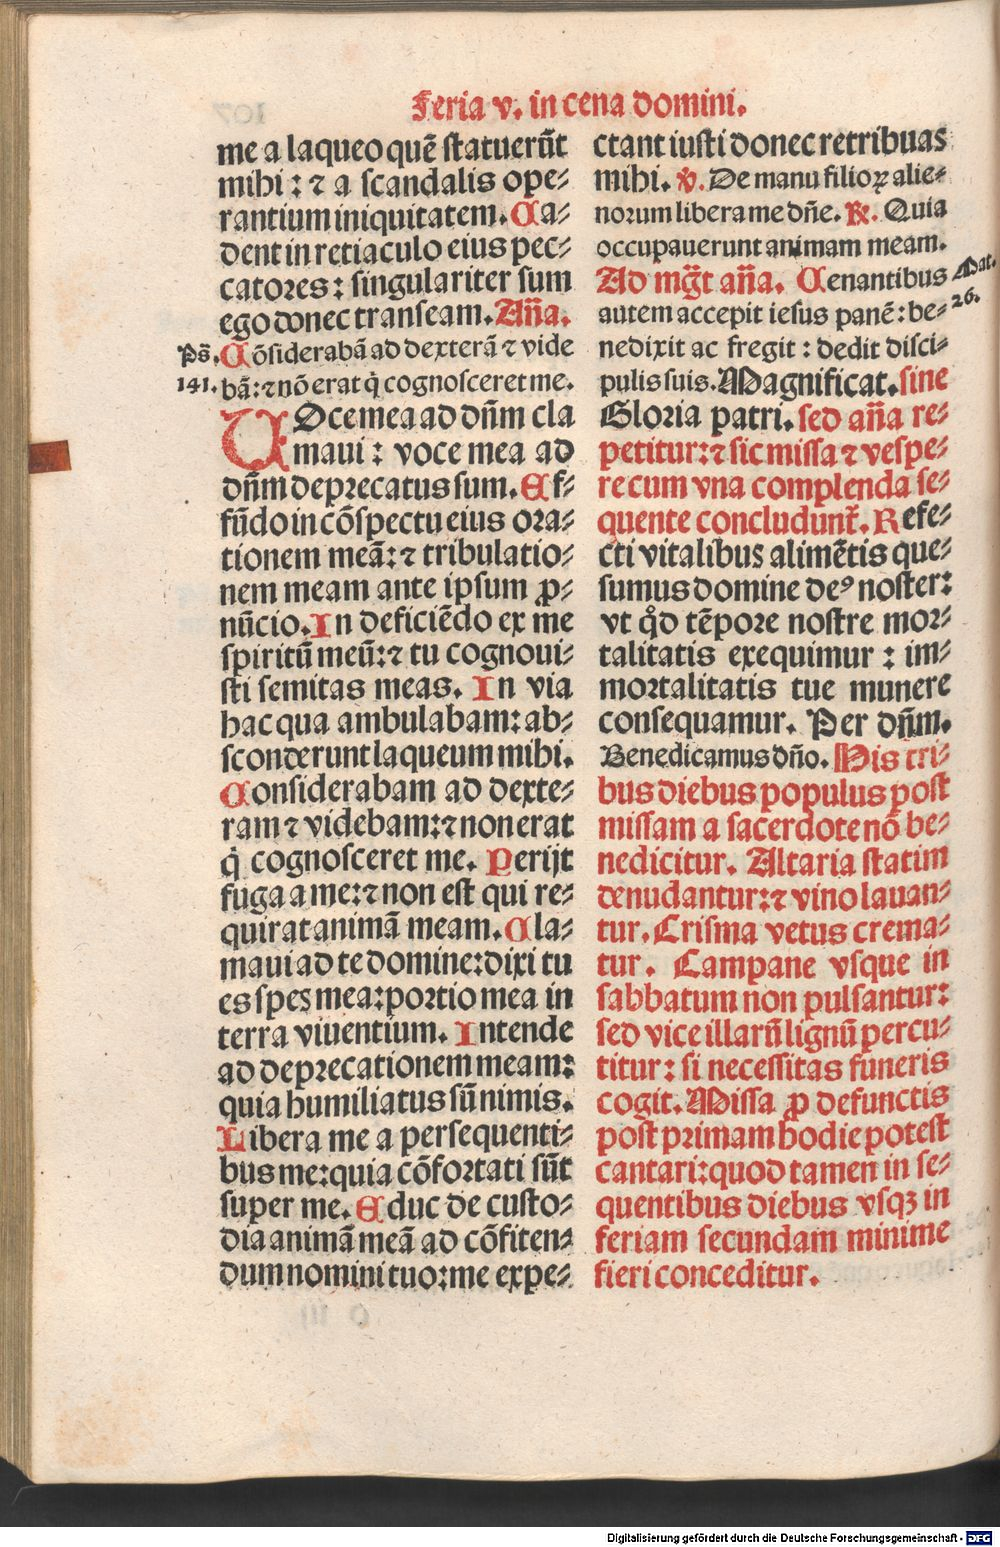 Feria v. in cena domini.
me a laqueo quē statuerūt
mihi : ⁊ a scandalis ope⸗
rantium iniquitatem. Ca⸗
dent in retiaculo eius pec⸗
catores : singulariter sum
ego donec transeam. Añа.
Ps̄. Cōsiderabā ad dexterā ⁊ vide
141. bā: ⁊ nō erat q̇ cognosceret me.
VOce mea ad dn̄m cla
maui : voce mea ad
dn̄m deprecatus sum. Ef⸗
fūdo in cōspectu eius ora⸗
tionem meā: ⁊ tribulatio⸗
nem meam ante ipsum ꝓ⸗
nūcio. In deficiēdo ex me
spiritū meū: ⁊ tu cognoui⸗
sti semitas meas. In via
hac qua ambulabam: ab⸗
sconderunt laqueum mihi.
Considerabam ad dexte⸗
ram ⁊ videbam: ⁊ non erat
q̇ cognosceret me. Perijt
fuga a me: ⁊ non est qui re⸗
quirat animā meam. Cla⸗
maui ad te domine: dixi tu
es spes mea: portio mea in
terra viuentium. Intende
ad deprecationem meam:
quia humiliatus sū nimis.
Libera me a persequenti⸗
bus me: quia cōfortati sūt
super me. Educ de custo⸗
dia animā meā ad cōfiten⸗
dum nomini tuo: me expe⸗
ctant iusti donec retribuas
mihi. ℣. De manu filioꝝ alie⸗
norum libera me dn̄e. ℟. Quia
occupauerunt animam meam.
Ad mg̅t an̄a. Cenantibus Mat.
autem accepit iesus panē: be⸗ 26.
nedixit ac fregit : dedit disci⸗
pulis suis. Magnificat. sine
Gloria patri. sed an̄a re⸗
petitur: ⁊ sic missa ⁊ vespe⸗
re cum vna complenda se⸗
quente concludunt̄. Refe⸗
cti vitalibus alimētis que⸗
sumus domine deꝰ noster:
vt qd̊ tēpore nostre mor⸗
talitatis exequimur : im⸗
mortalitatis tue munere
consequamur. Per dn̄m.
Benedicamus dn̄o. His tri⸗
bus diebus populus post
missam a sacerdote nō be⸗
nedicitur. Altaria statim
denudantur: ⁊ vino lauan⸗
tur. Crisma vetus crema⸗
tur. Campane vsque in
sabbatum non pulsantur:
sed vice illarū lignū percu⸗
titur : si necessitas funeris
cogit. Missa ꝓ defunctis
post primam hodie potest
cantari: quod tamen in se⸗
quentibus diebus vsqꝫ in
feriam secundam minime
fieri conceditur.
Digitalisierung gefördert durch die Deutsche Forschungsgemeinschaft - DFG